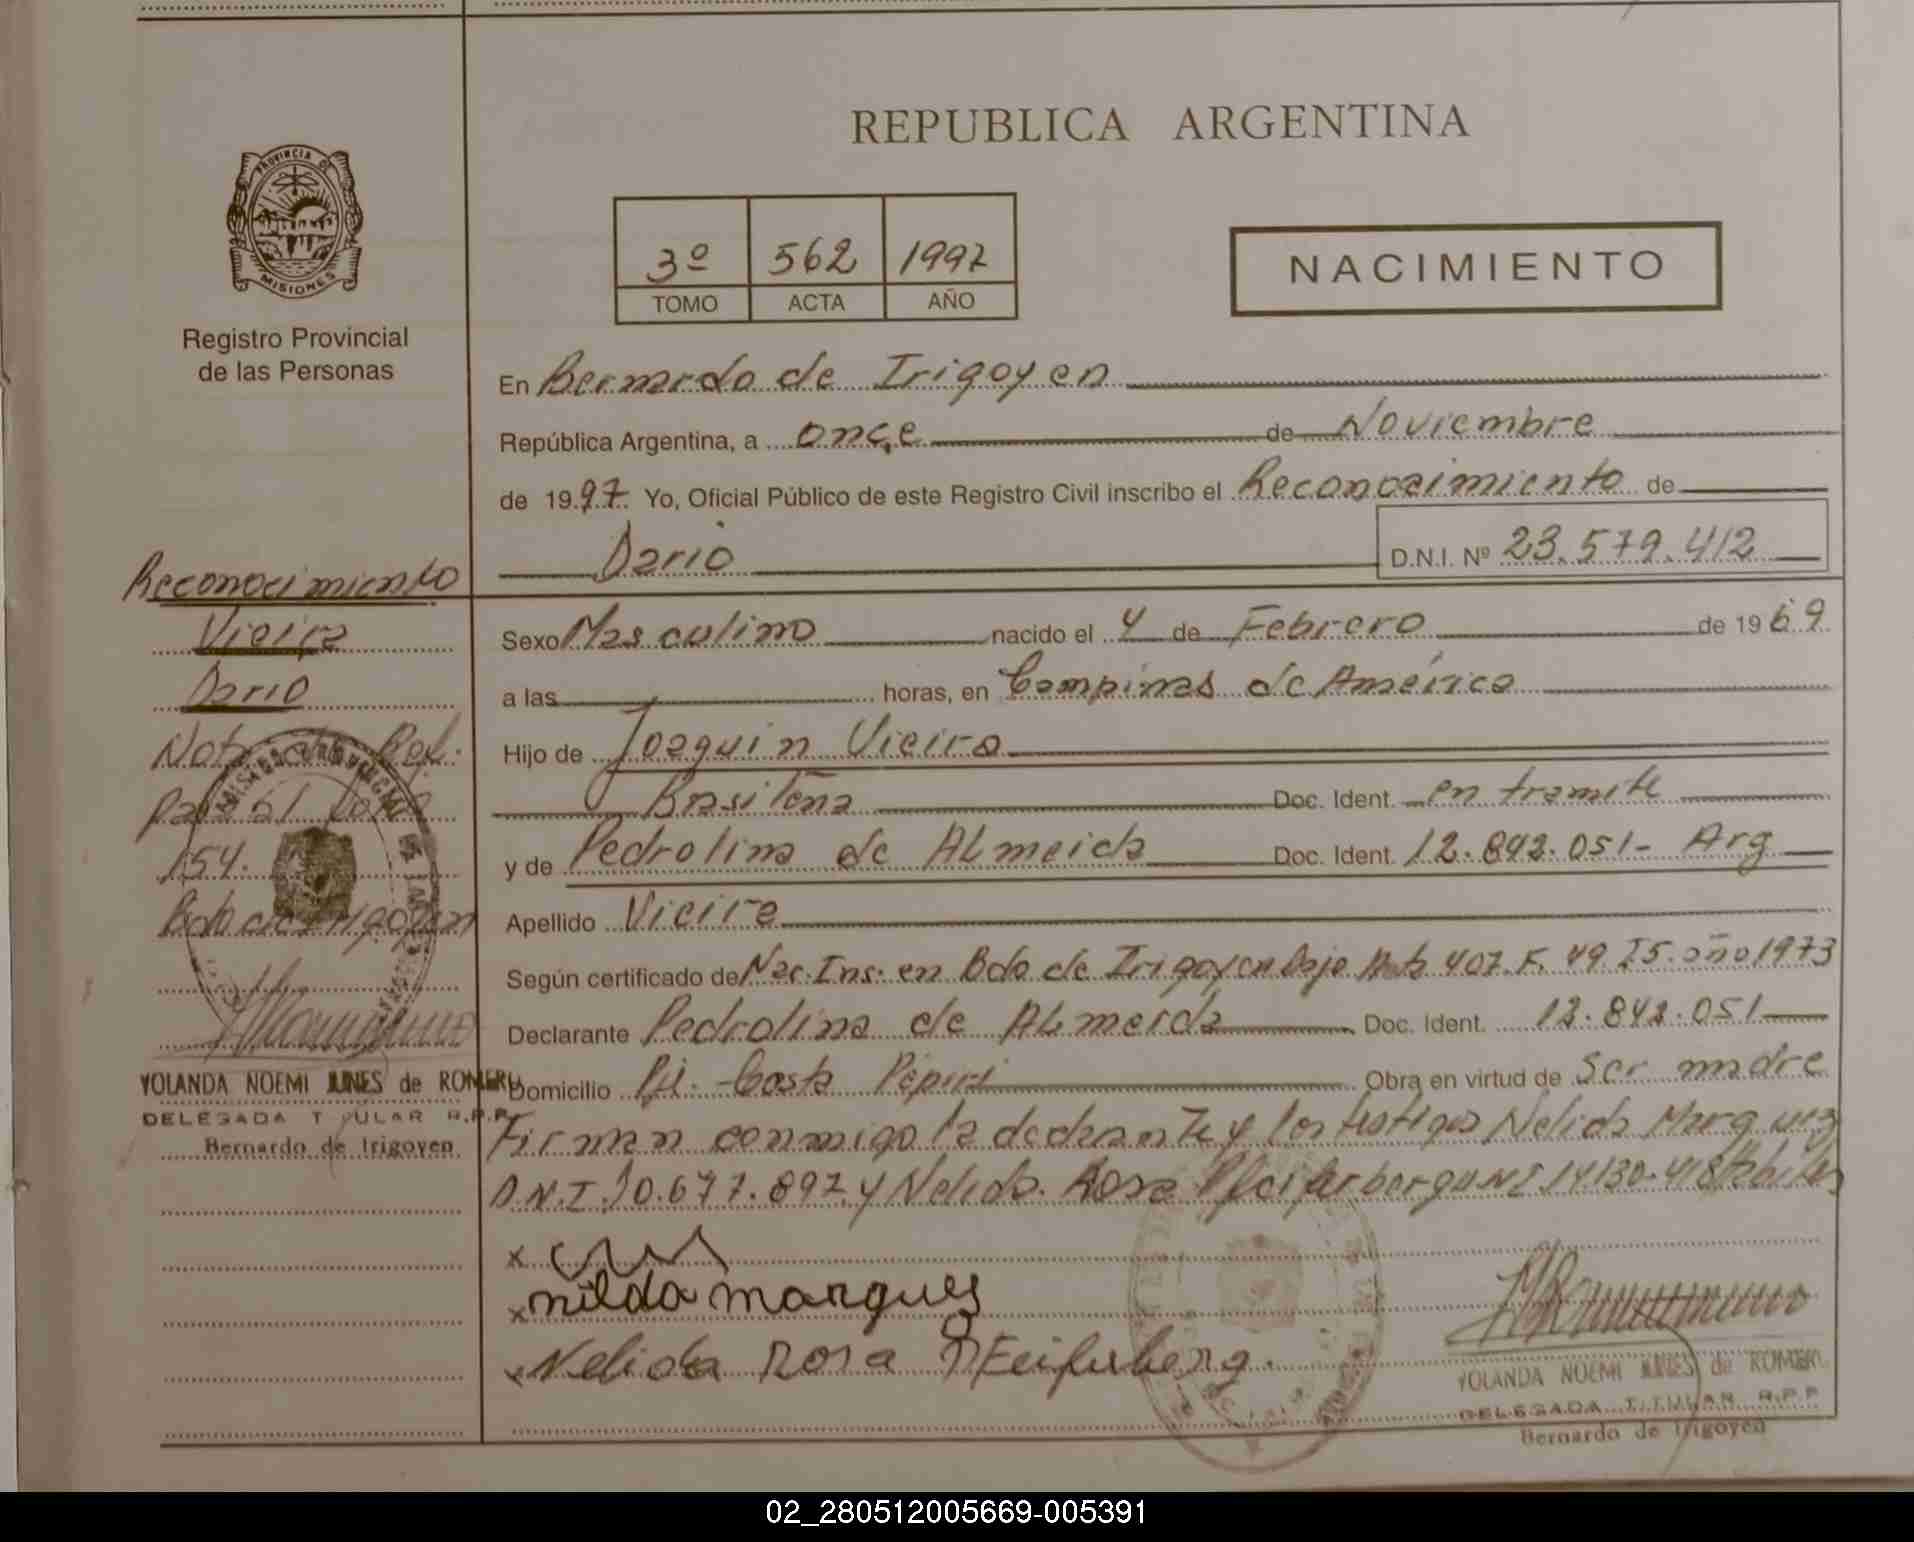 REPUBLICA ARGENTINA
PROVINCIA DE
MISIONES
Registro Provincial
de las Personas
3º 562 1997
TOMO ACTA AÑO
NACIMIENTO
En Bernardo de Irigoyen
República Argentina, a once de Noviembre
de 1997 Yo, Oficial Público de este Registro Civil inscribo el Reconocimiento de
Dario D.N.I. Nº 23.579.412
Reconocimiento
Vieira
Dario
Nota de Ref.
154.
Bdo de Irigoyen
YOLANDA NOEMI JUNES de ROMERO
DELEGADA TITULAR R.P.P.
Bernardo de Irigoyen
Sexo Masculino nacido el 4 de Febrero de 1969
a las horas, en Campinas de América
Hijo de Joaquin Vieira
Brasileña Doc. Ident. en tramite
y de Pedrolina de Almeida Doc. Ident. 12.842.051- Arg
Apellido Vieira
Según certificado de Nac. Ins. en Bdo de Irigoyen bajo 407 F. 49 T5. año 1973
Declarante Pedrolina de Almeida Doc. Ident. 12.842.051
Domicilio Pje. - Costa Pepiri Obra en virtud de Ser madre
Firman conmigo la declarante y los testigos Nelida Marquez
D.N.I. 10.677.897 y Nelida Rosa Pfeiferberg DNI 14130.418 Habiles
x
x nilda marques
x Nelida Rosa Pfeiferberg.
YOLANDA NOEMI JUNES de ROMERO
DELEGADA TITULAR R.P.P
Bernardo de Irigoyen
02_280512005669-005391